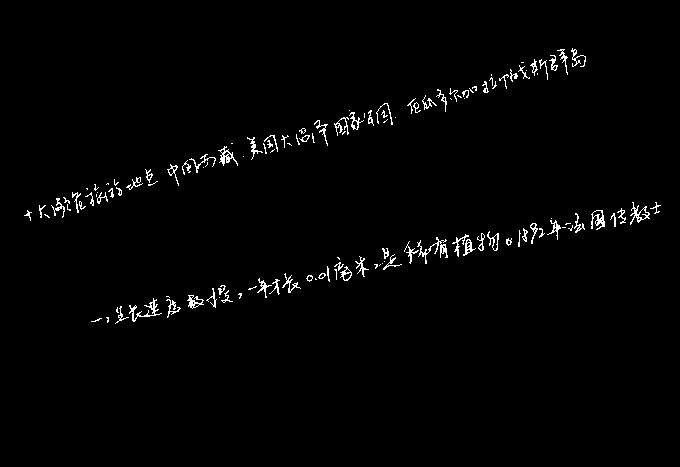 十大濒危旅游地点 中国西藏、美国大沼泽国家公园、厄瓜多尔加拉帕戈斯群岛
一，生长速度极慢，一年才长0.01厘米，是稀有植物。1892年法国传教士